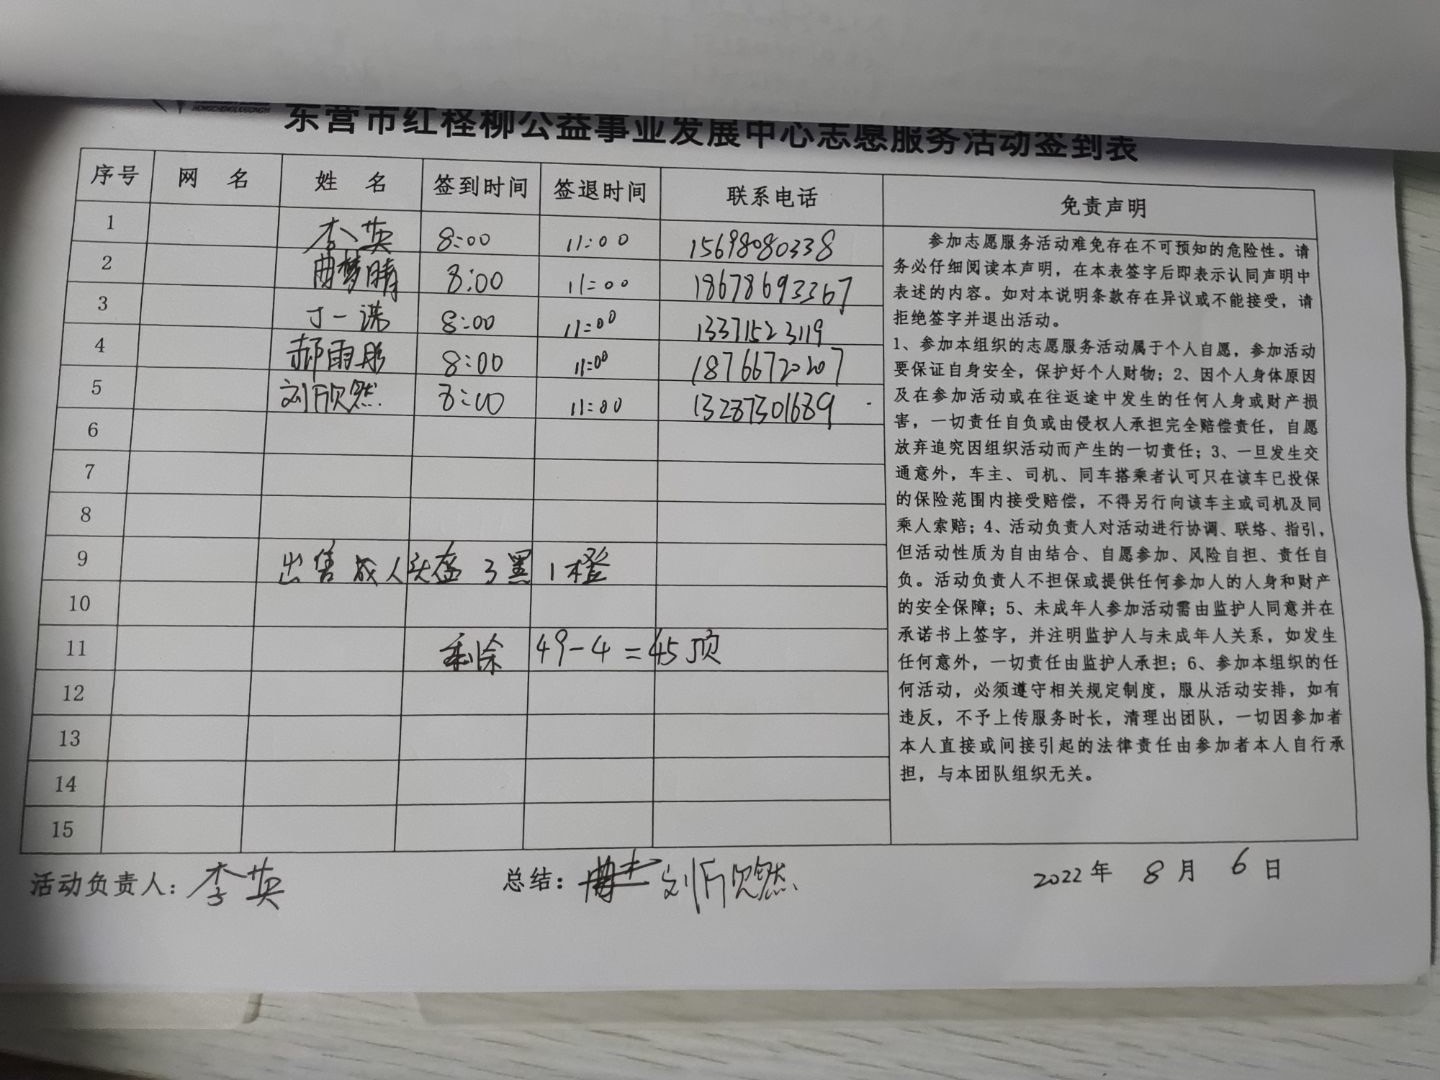 东营市红柽柳公益事业发展中心志愿服务活动签到表
序号 网 名 姓 名 签到时间 签退时间 联系电话 免责声明
1 李英 8:00 11:00 15698080338
2 曲梦晴 8:00 11:00 18678693367
3 丁一 8:00 11:00 13371523119
4 郝雨彤 8:00 11:00 18766720207
5 刘欣然 8:00 11:00 13287301689
6
7
8
9 出售成人头盔 3黑 1橙
10
11 剩余 49-4=45顶
12
13
14
15
参加志愿服务活动难免存在不可预知的危险性。请
务必仔细阅读本声明，在本表签字后即表示认同声明中
表述的内容。如对本说明条款存在异议或不能接受，请
拒绝签字并退出活动。
1、参加本组织的志愿服务活动属于个人自愿，参加活动
要保证自身安全，保护好个人财物；2、因个人身体原因
及在参加活动或在往返途中发生的任何人身或财产损
害，一切责任自负或由侵权人承担完全赔偿责任，自愿
放弃追究因组织活动而产生的一切责任；3、一旦发生交
通意外，车主、司机、同车搭乘者认可只在该车已投保
的保险范围内接受赔偿，不得另行向该车主或司机及同
乘人索赔；4、活动负责人对活动进行协调、联络、指引，
但活动性质为自由结合、自愿参加、风险自担、责任自
负。活动负责人不担保或提供任何参加人的人身和财产
的安全保障；5、未成年人参加活动需由监护人同意并在
承诺书上签字，并注明监护人与未成年人关系，如发生
任何意外，一切责任由监护人承担；6、参加本组织的任
何活动，必须遵守相关规定制度，服从活动安排，如有
违反，不予上传服务时长，清理出团队，一切因参加者
本人直接或间接引起的法律责任由参加者本人自行承
担，与本团队组织无关。
活动负责人：李英 总结：刘欣然 2022年 8月 6日